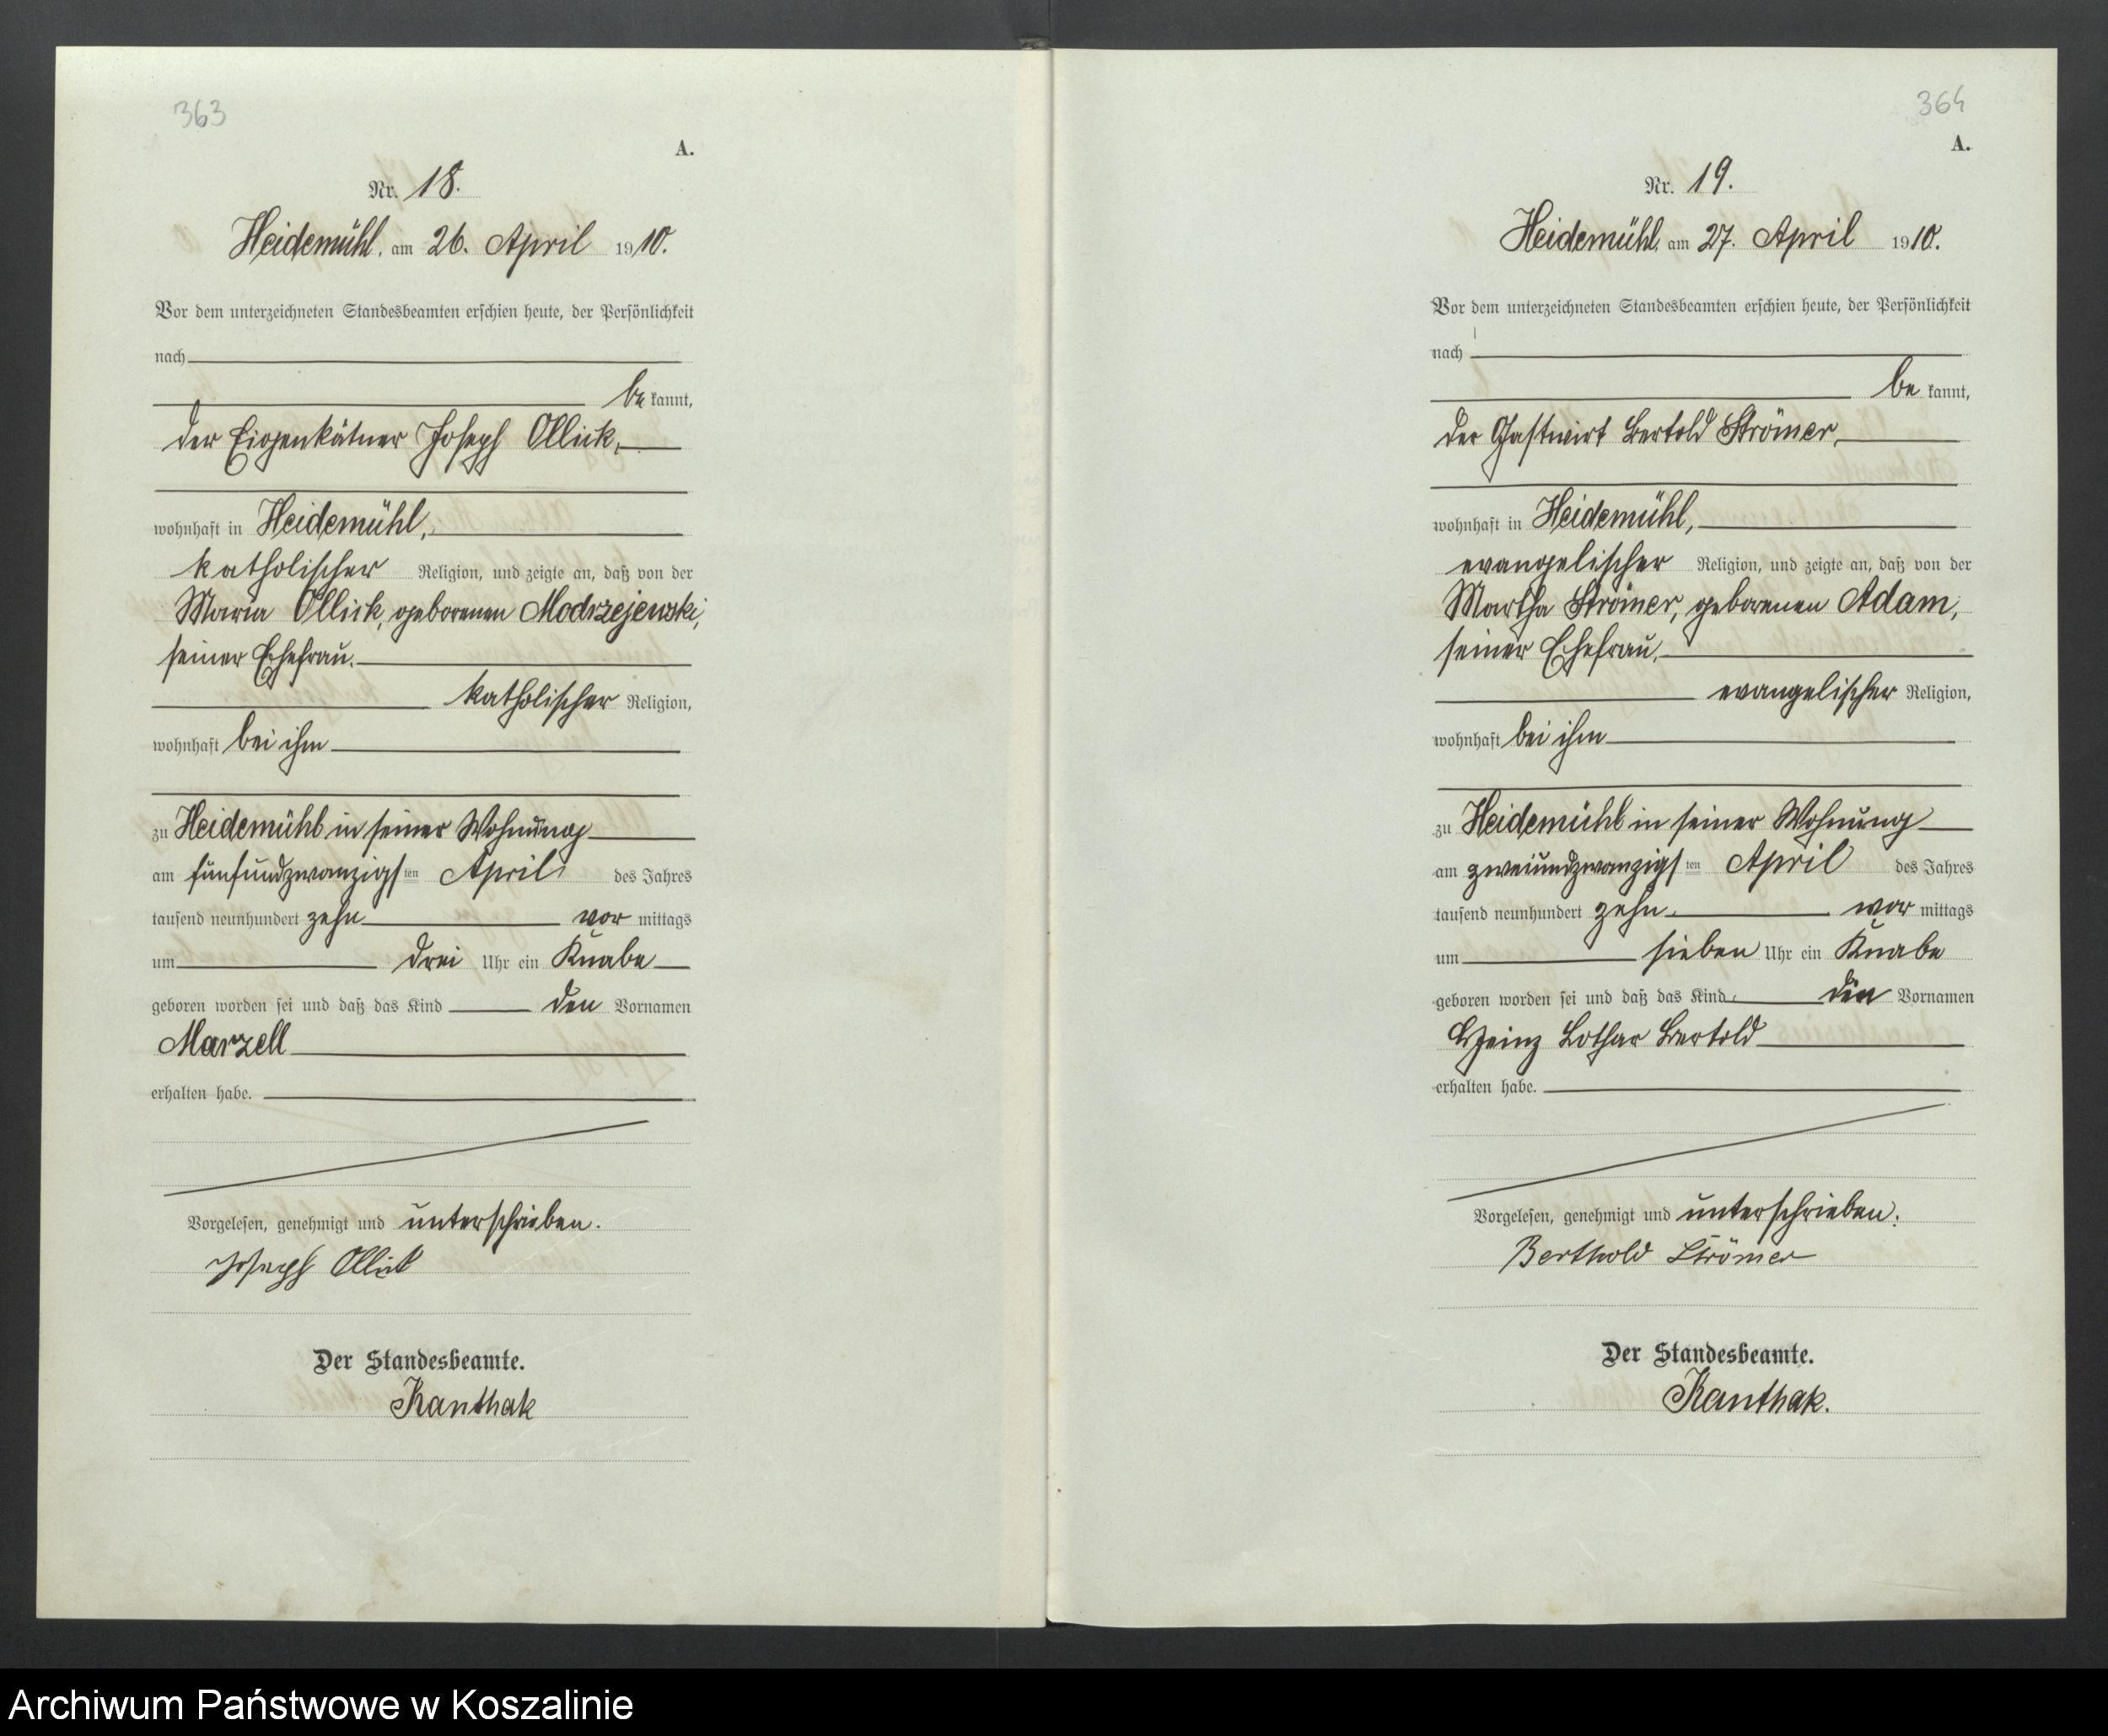 363
A.
Nr. 18.
Heidemühl, am 26. April 1910.
Vor dem unterzeichneten Standesbeamten erschien heute, der Persönlichkeit
nach
be kannt,
der Eigenkätner Joseph Ollick,
wohnhaft in Heidemühl,
katholischer Religion, und zeigte an, daß von der
Maria Ollick, geborenen Modrzejewski,
seiner Ehefrau,
katholischer Religion,
wohnhaft bei ihm
zu Heidemühl in seiner Wohnung
am fünfundzwanzigsten April des Jahres
tausend neunhundert zehn vor mittags
um drei Uhr ein Knabe
geboren worden sei und daß das Kind den Vornamen
Marzell
erhalten habe.
Vorgelesen, genehmigt und unterschrieben.
Joseph Ollick
Der Standesbeamte.
Kanthak
364
A.
Nr. 19.
Heidemühl, am 27. April 1910.
Vor dem unterzeichneten Standesbeamten erschien heute, der Persönlichkeit
nach
be kannt,
der Gastwirt Bertold Strömer,
wohnhaft in Heidemühl,
evangelischer Religion, und zeigte an, daß von der
Martha Strömer, geborenen Adam,
seiner Ehefrau,
evangelischer Religion,
wohnhaft bei ihm
zu Heidemühl in seiner Wohnung
am zweiundzwanzigsten April des Jahres
tausend neunhundert zehn vor mittags
um sieben Uhr ein Knabe
geboren worden sei und daß das Kind die Vornamen
Heinz Lothar Bertold
erhalten habe.
Vorgelesen, genehmigt und unterschrieben.
Berthold Strömer
Der Standesbeamte.
Kanthak.
Archiwum Państwowe w Koszalinie